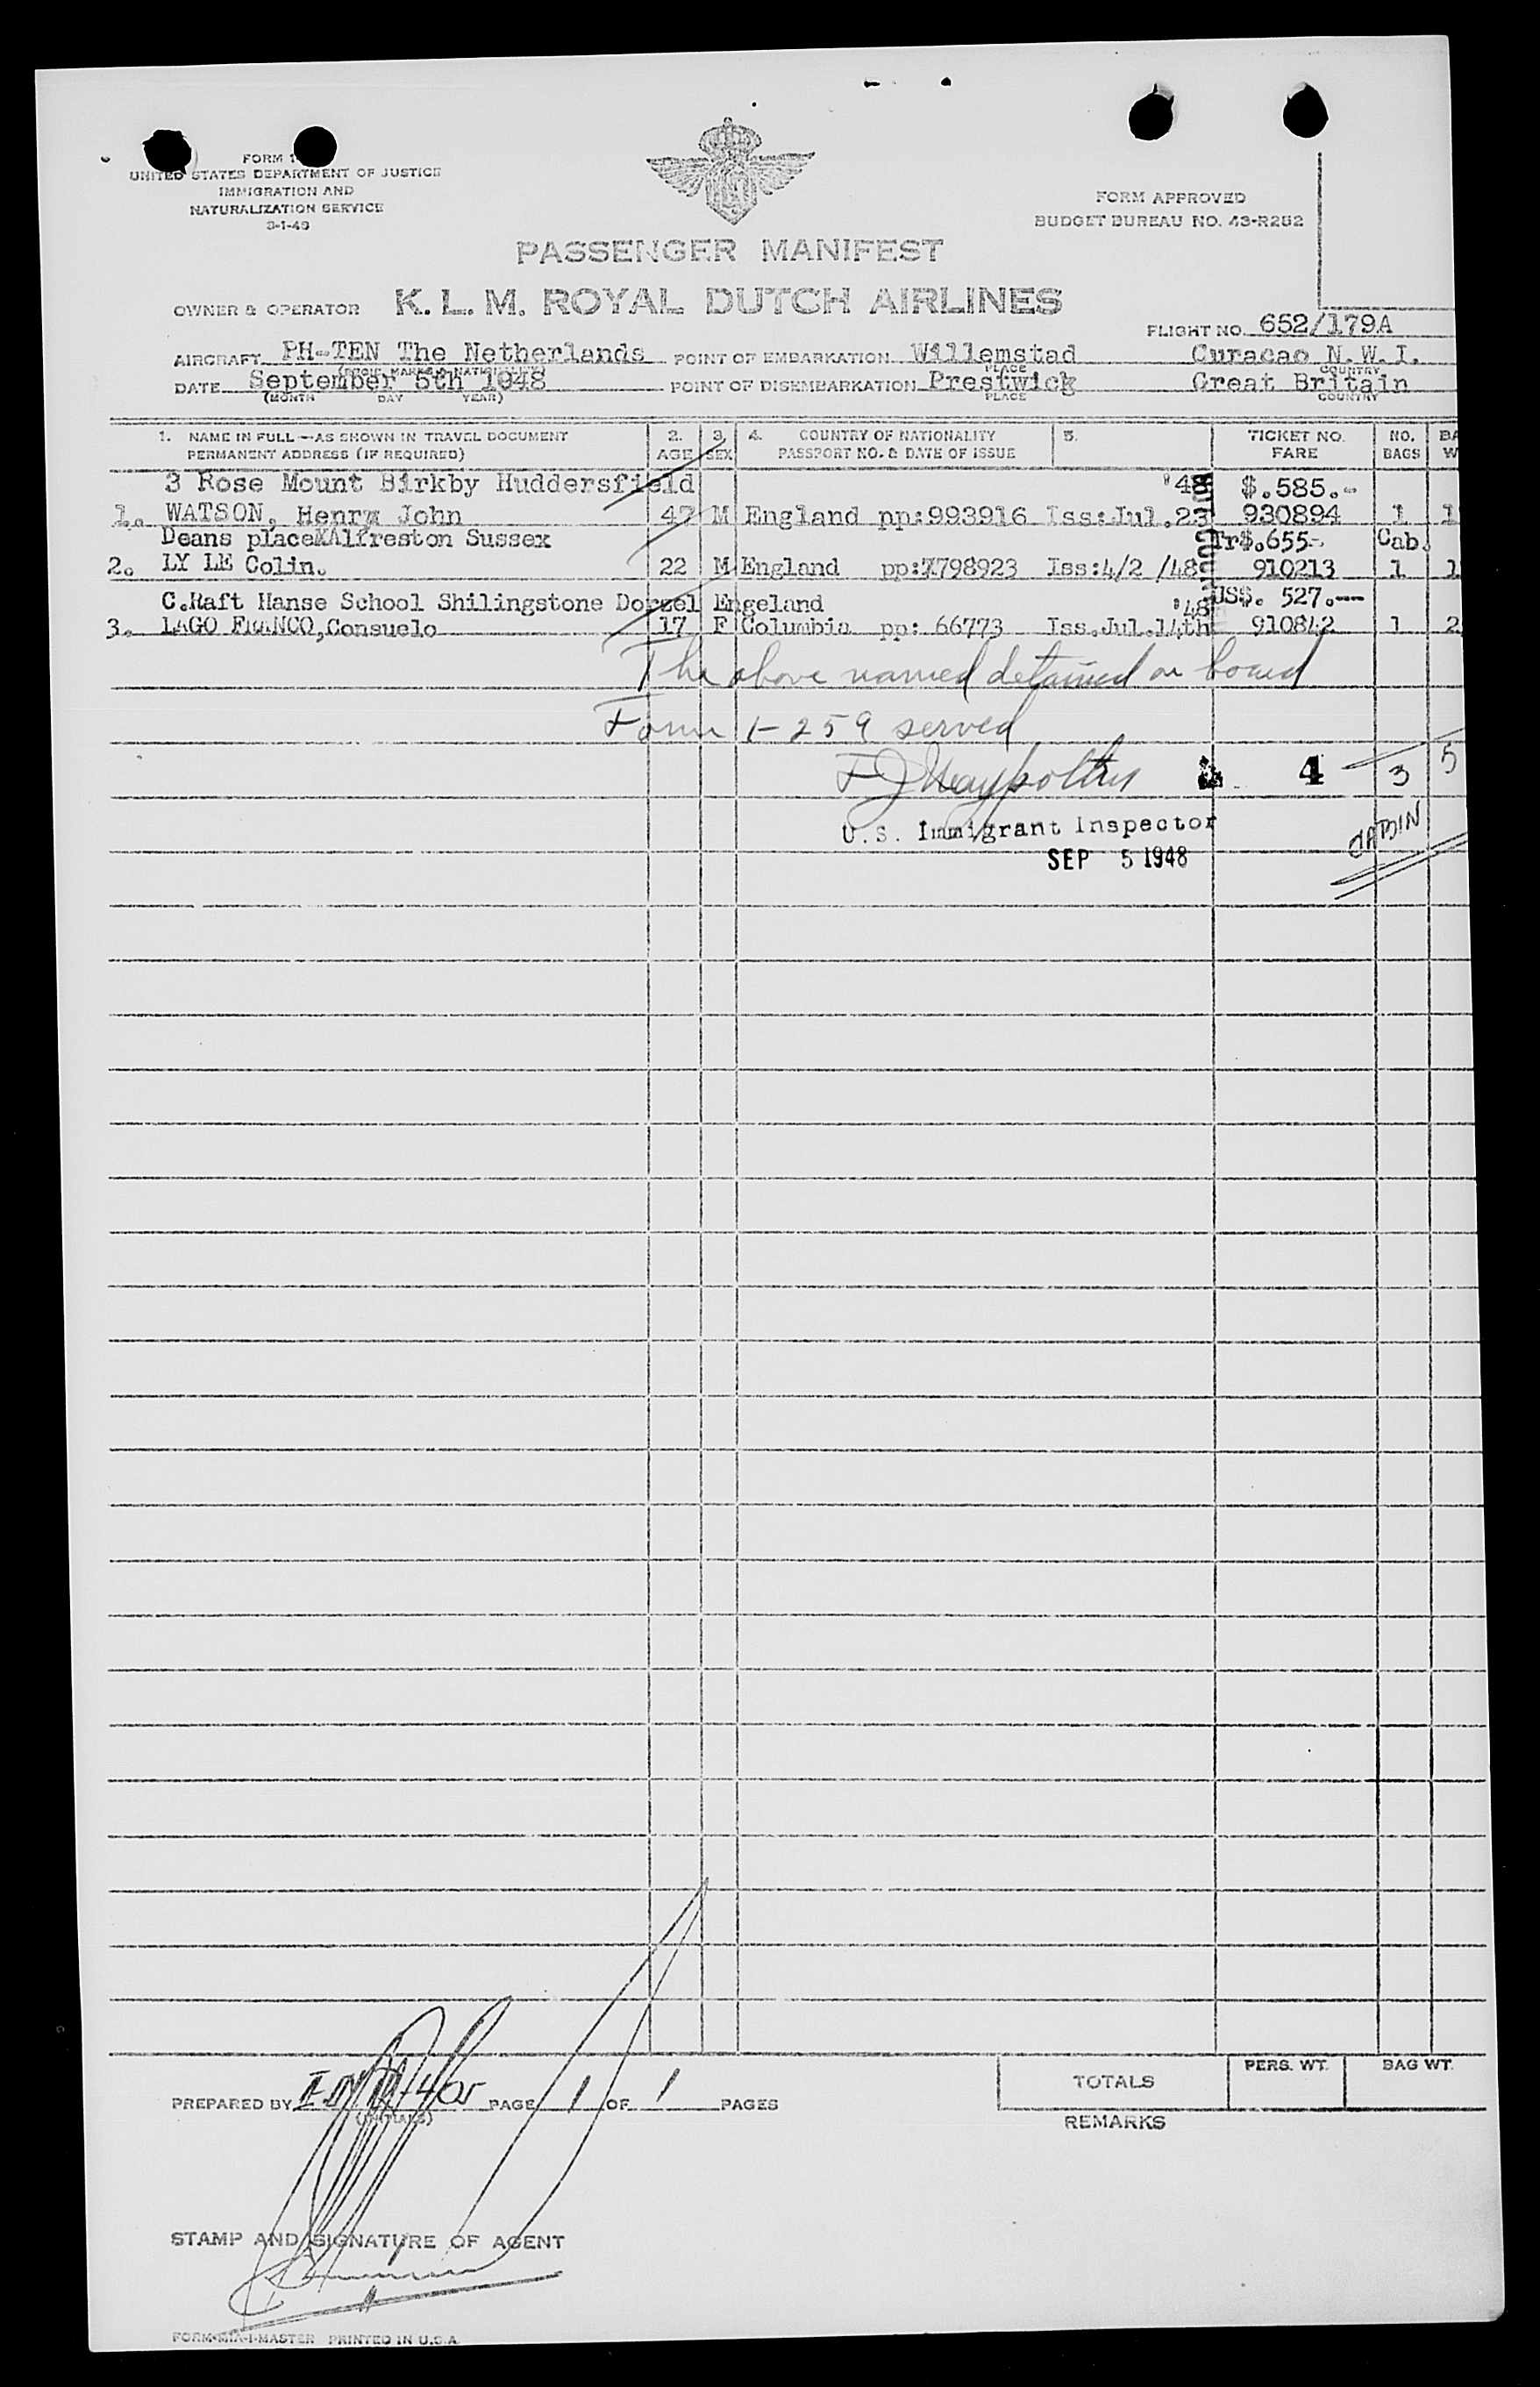 FORM
UNITED STATES DEPARTMENT OF JUSTICE
IMMIGRATION AND
NATURALIZATION SERVICE
FORM APPROVED
BUDGET BUREAU NO. 43-R252
PASSENGER MANIFEST
OWNER & OPERATOR K. L. M. ROYAL DUTCH AIRLINES
FLIGHT NO. 652/179A
AIRCRAFT PH-TEN The Netherlands POINT OF EMBARKATION Willemstad Curacao N.W.I.
PLACE COUNTRY
DATE September 5th 1948 POINT OF DISEMBARKATION Prestwick Great Britain
(MONTH DAY YEAR) PLACE COUNTRY
1. NAME IN FULL—AS SHOWN IN TRAVEL DOCUMENT 2. 3. 4. COUNTRY OF NATIONALITY 5. TICKET NO. NO. BA
PERMANENT ADDRESS (IF REQUIRED) AGE SEX PASSPORT NO. & DATE OF ISSUE FARE BAGS W
3 Rose Mount Birkby Huddersfield '48 $.585.-
1. WATSON, Henry John 47 M England pp:993916 Iss:Jul.23 930894 1 1
Deans place Alfreston Sussex Tr$.655- Cab.
2. LY LE Colin. 22 M England pp: 798923 Iss:4/2 /48 910213 1 1
C.Raft Hanse School Shilingstone Dorzel Engeland '48 US$. 527.--
3. LAGO FRANCO,Consuelo 17 F Columbia pp: 66773 Iss.Jul.14th 910842 1 2
The above named detained on board
Form I-259 served
4 3 5
U.S. Immigrant Inspector
CABIN
SEP 5 1948
TOTALS PERS. WT. BAG WT.
PREPARED BY PAGE 1 OF 1 PAGES
(INITIALS)
REMARKS
STAMP AND SIGNATURE OF AGENT
FORM-MIA-1-MASTER PRINTED IN U.S.A.